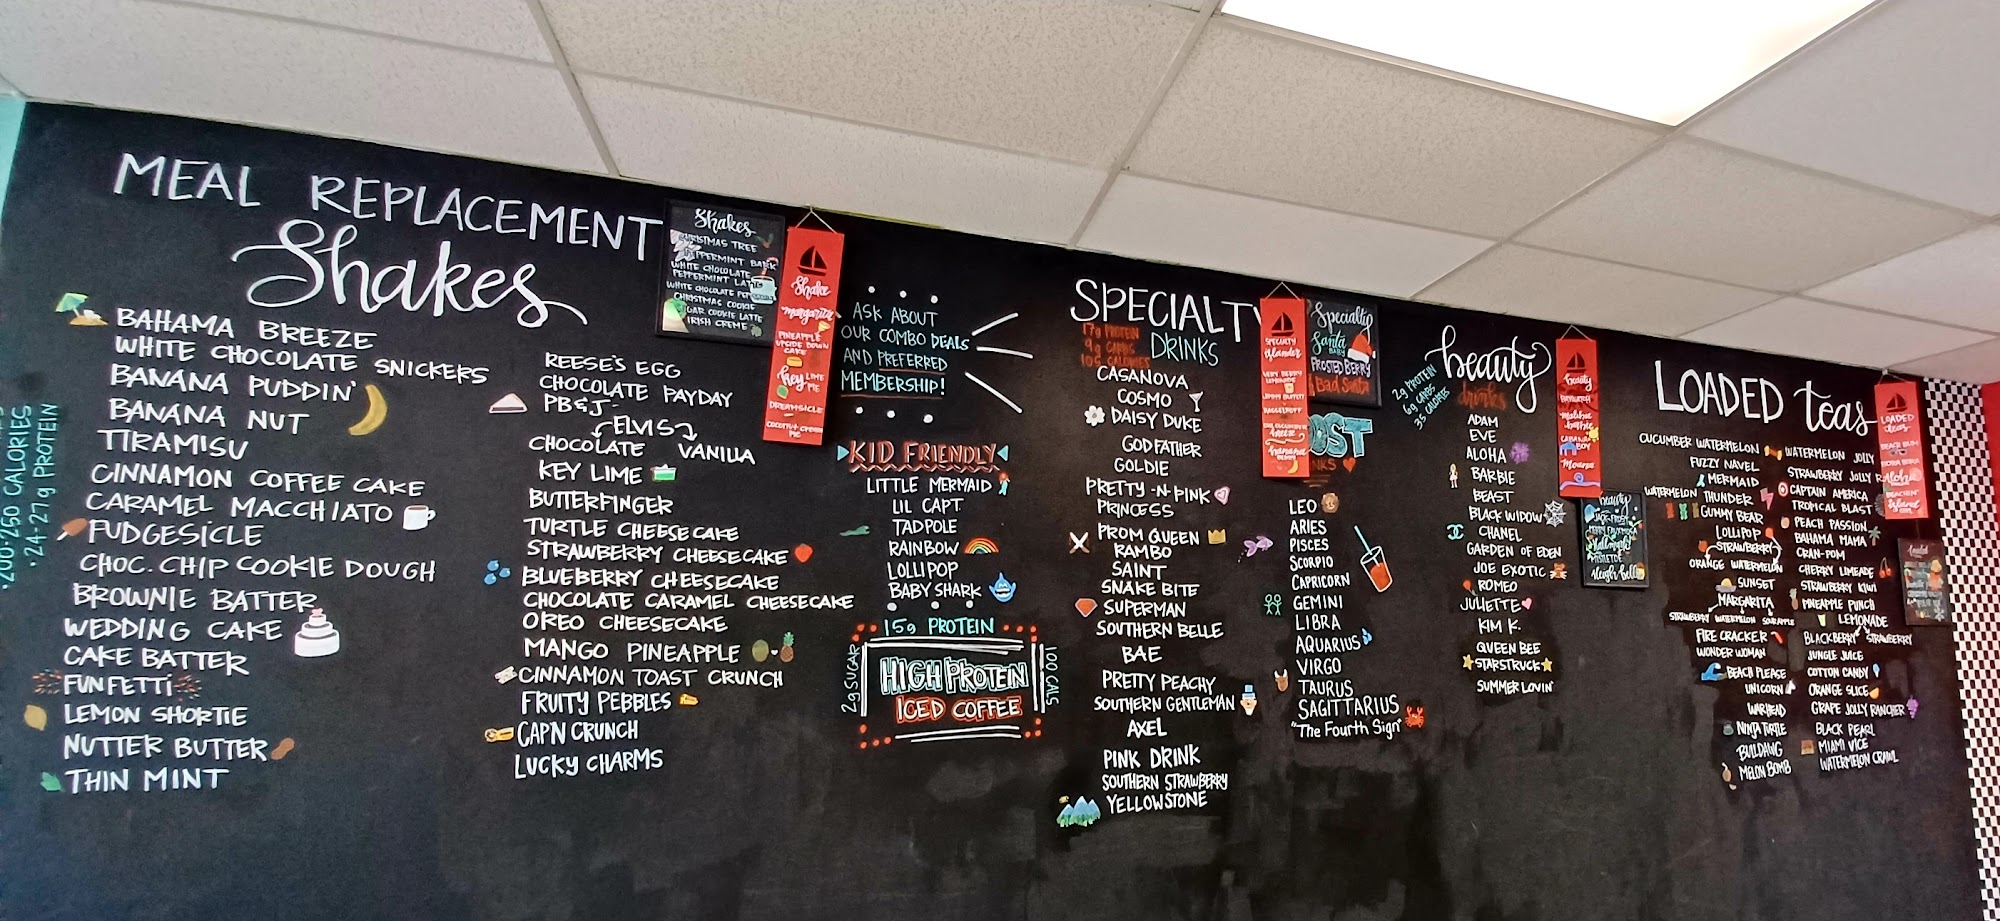 MEAL REPLACEMENT
Shakes
.200-250 CALORIES
.24-27g PROTEIN
BAHAMA BREEZE
WHITE CHOCOLATE SNICKERS
BANANA PUDDIN'
BANANA NUT
TIRAMISU
CINNAMON COFFEE CAKE
CARAMEL MACCHIATO
FUDGESICLE
CHOC. CHIP COOKIE DOUGH
BROWNIE BATTER
WEDDING CAKE
CAKE BATTER
FUNFETTI
LEMON SHORTIE
NUTTER BUTTER
THIN MINT
REESE'S EGG
CHOCOLATE PAYDAY
PB&J
ELVIS
CHOCOLATE VANILLA
KEY LIME
BUTTERFINGER
TURTLE CHEESECAKE
STRAWBERRY CHEESECAKE
BLUEBERRY CHEESECAKE
CHOCOLATE CARAMEL CHEESECAKE
OREO CHEESECAKE
MANGO PINEAPPLE
CINNAMON TOAST CRUNCH
FRUITY PEBBLES
CAPN CRUNCH
LUCKY CHARMS
Shakes
CHRISTMAS TREE
PEPPERMINT BARK
WHITE CHOCOLATE
PEPPERMINT LATTE
WHITE CHOCOLATE
CHRISTMAS COOKIE
COOKIE LATTE
IRISH CREME
Shake
margarita
PINEAPPLE
UPSIDE DOWN
CAKE
hey LIME
PIE
DREAMSICLE
COCONUT CREAM
PIE
ASK ABOUT
OUR COMBO DEALS
AND PREFERRED
MEMBERSHIP!
KID FRIENDLY
LITTLE MERMAID
LIL CAPT
TADPOLE
RAINBOW
LOLLIPOP
BABY SHARK
15g PROTEIN
2g SUGAR
HIGH PROTEIN
ICED COFFEE
100 CALS
SPECIALTY
DRINKS
17g PROTEIN
9g CARBS
105 CALORIES
CASANOVA
COSMO
DAISY DUKE
GODFATHER
GOLDIE
PRETTY-N-PINK
PRINCESS
PROM QUEEN
RAMBO
SAINT
SNAKE BITE
SUPERMAN
SOUTHERN BELLE
BAE
PRETTY PEACHY
SOUTHERN GENTLEMAN
AXEL
PINK DRINK
SOUTHERN STRAWBERRY
YELLOWSTONE
SPECIALTY
VERY BERRY
LEMONADE
JIMMY BUFFETT
banana
Specialty
Santa
BABY
FROSTED BERRY
Bad Santa
LEO
ARIES
PISCES
SCORPIO
CAPRICORN
GEMINI
LIBRA
AQUARIUS
VIRGO
TAURUS
SAGITTARIUS
"The Fourth Sign"
beauty
drinks
2g PROTEIN
6g CARBS
35 CALORIES
ADAM
EVE
ALOHA
BARBIE
BEAST
BLACK WIDOW
CHANEL
GARDEN OF EDEN
JOE EXOTIC
ROMEO
JULIETTE
KIM K.
QUEEN BEE
STARSTRUCK
SUMMER LOVIN'
beauty
BAYWATCH
malibu
barbie
CABANA
BOY
Moana
beauty
JACK FROST
LOADED teas
CUCUMBER WATERMELON
FUZZY NAVEL
MERMAID
WATERMELON THUNDER
GUMMY BEAR
LOLLIPOP
STRAWBERRY
ORANGE WATERMELON
SUNSET
MARGARITA
STRAWBERRY WATERMELON SOURAPPLE
FIRE CRACKER
WONDER WOMAN
BEACH PLEASE
UNICORN
WARHEAD
NINJA TURTLE
BULLDAWG
MELON BOMB
WATERMELON JOLLY
STRAWBERRY JOLLY
CAPTAIN AMERICA
TROPICAL BLAST
PEACH PASSION
BAHAMA MAMA
CRAN-POM
CHERRY LIMEADE
STRAWBERRY KIWI
PINEAPPLE PUNCH
LEMONADE
BLACKBERRY STRAWBERRY
JUNGLE JUICE
COTTON CANDY
ORANGE SLICE
GRAPE JOLLY RANCHER
BLACK PEARL
MIAMI VICE
WATERMELON CRAWL
LOADED
teas
BEACH BUM
BORA BORA
Aloha